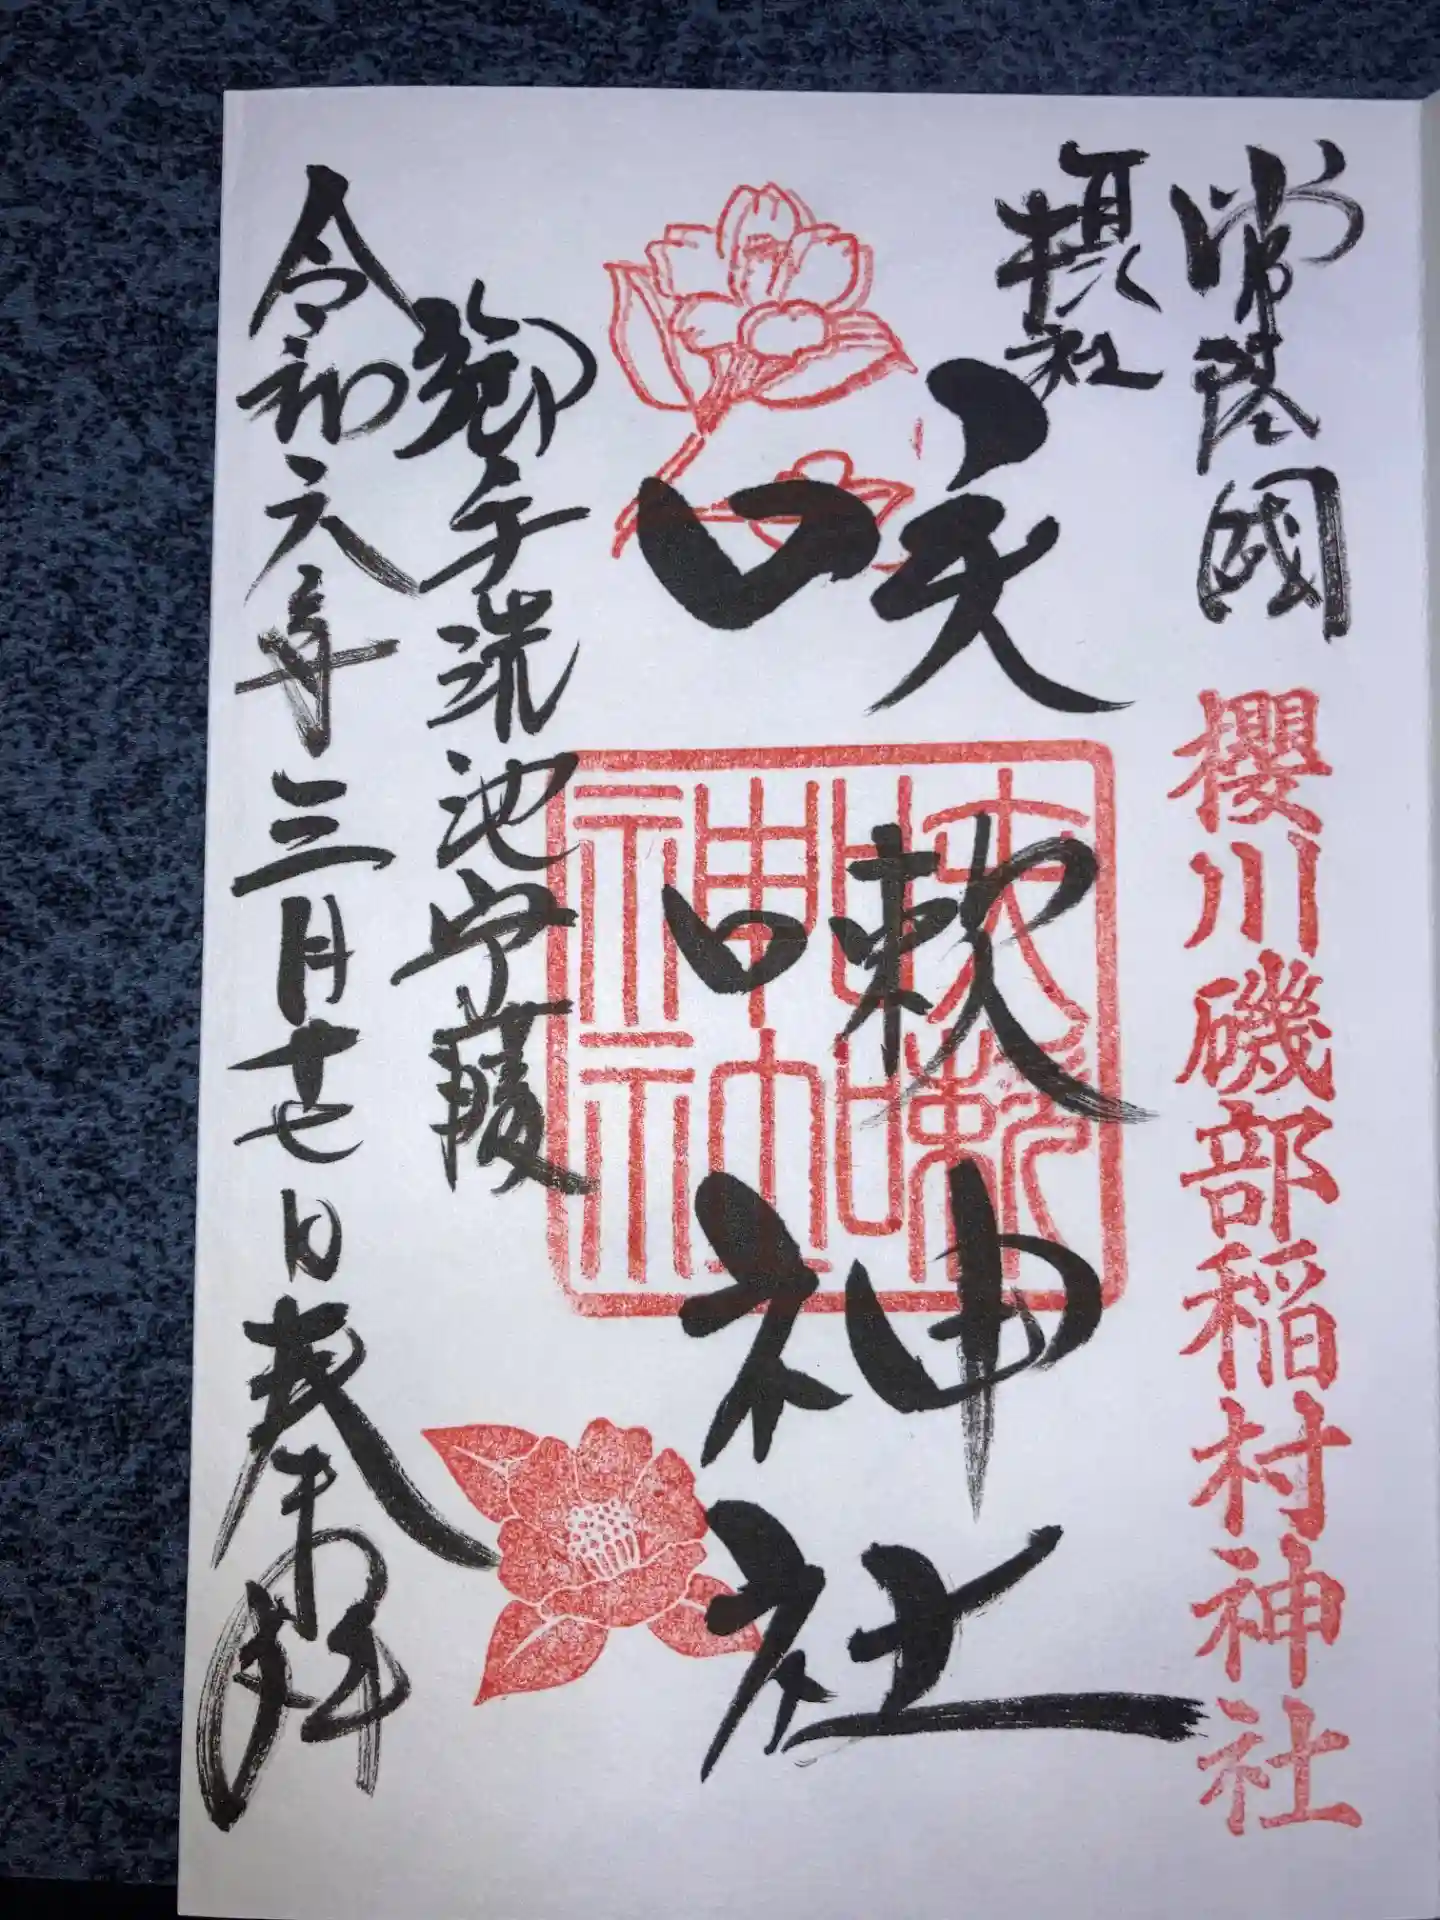 常陸國 櫻川磯部稲村神社
摂社
咲嗽神社
御手洗池守護
令和六年三月十七日奉拜